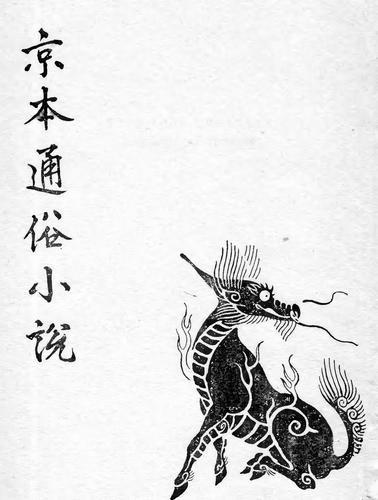 京本通俗小説